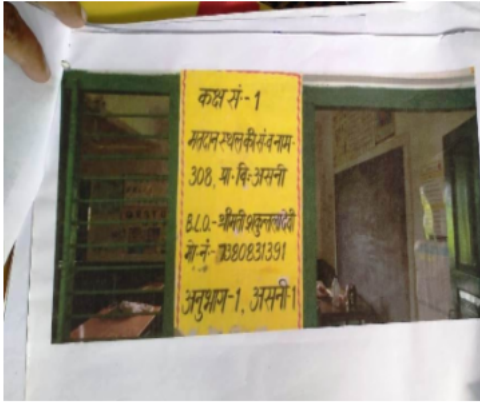 कक्ष सं:- 1
मतदान स्थल की सं व नाम-
308, प्रा॰ वि॰ असनी
B.L.O.- श्रीमती शकुन्तला देवी
मो॰ नं॰- 7380831391
अनुभाग-1, असनी-1